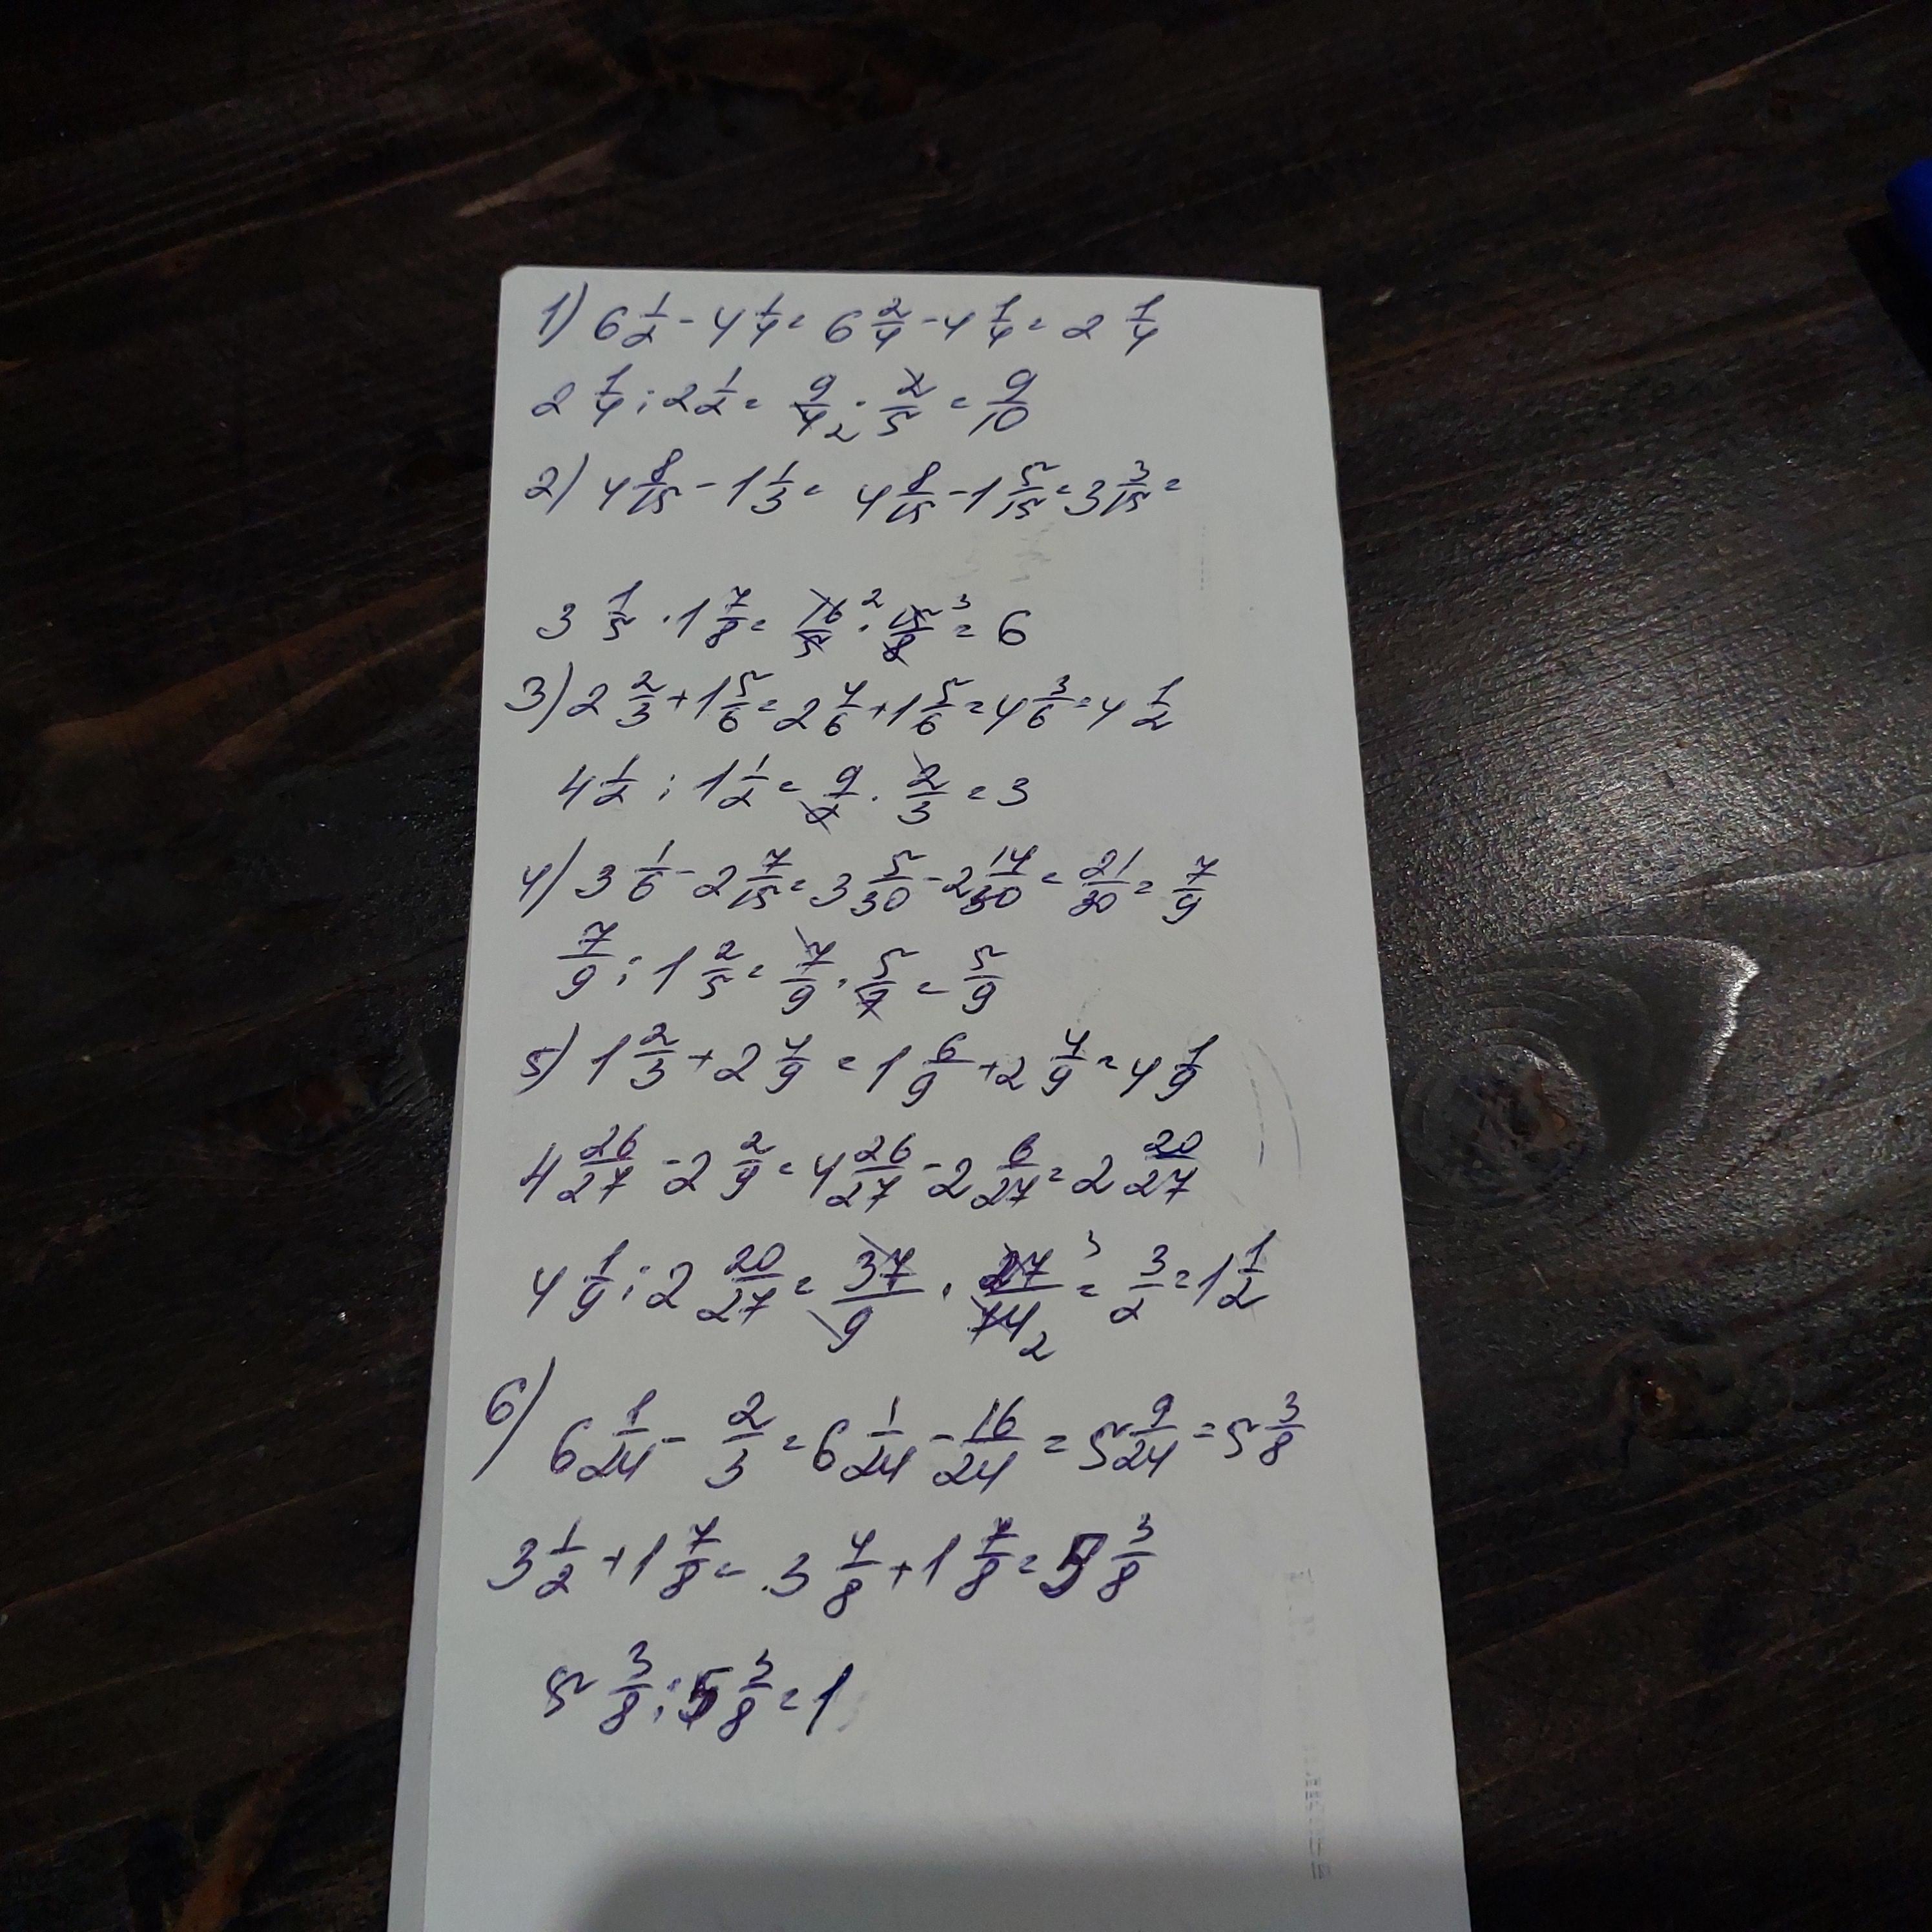 1) 6 1/2 - 4 1/4 = 6 2/4 - 4 1/4 = 2 1/4
2 1/4 : 2 1/2 = 9/4 2 · 2/5 = 9/10
2) 4 8/15 - 1 1/3 = 4 8/15 - 1 5/15 = 3 3/15 =
3 1/5 · 1 7/8 = 16/5 2 · 15/8 3 = 6
3) 2 2/3 + 1 5/6 = 2 4/6 + 1 5/6 = 4 3/6 = 4 1/2
4 1/2 : 1 1/2 = 9/2 · 2/3 = 3
4) 3 1/6 - 2 7/15 = 3 5/30 - 2 14/30 = 21/30 = 7/9
7/9 : 1 2/5 = 7/9 · 5/7 = 5/9
5) 1 2/3 + 2 4/9 = 1 6/9 + 2 4/9 = 4 1/9
4 26/27 - 2 2/9 = 4 26/27 - 2 6/27 = 2 20/27
4 1/9 : 2 20/27 = 37/9 · 27/74 3 2 = 3/2 = 1 1/2
6) 6 1/24 - 2/3 = 6 1/24 - 16/24 = 5 9/24 = 5 3/8
3 1/2 + 1 7/8 = 3 4/8 + 1 7/8 = 5 3/8
5 3/8 : 5 3/8 = 1